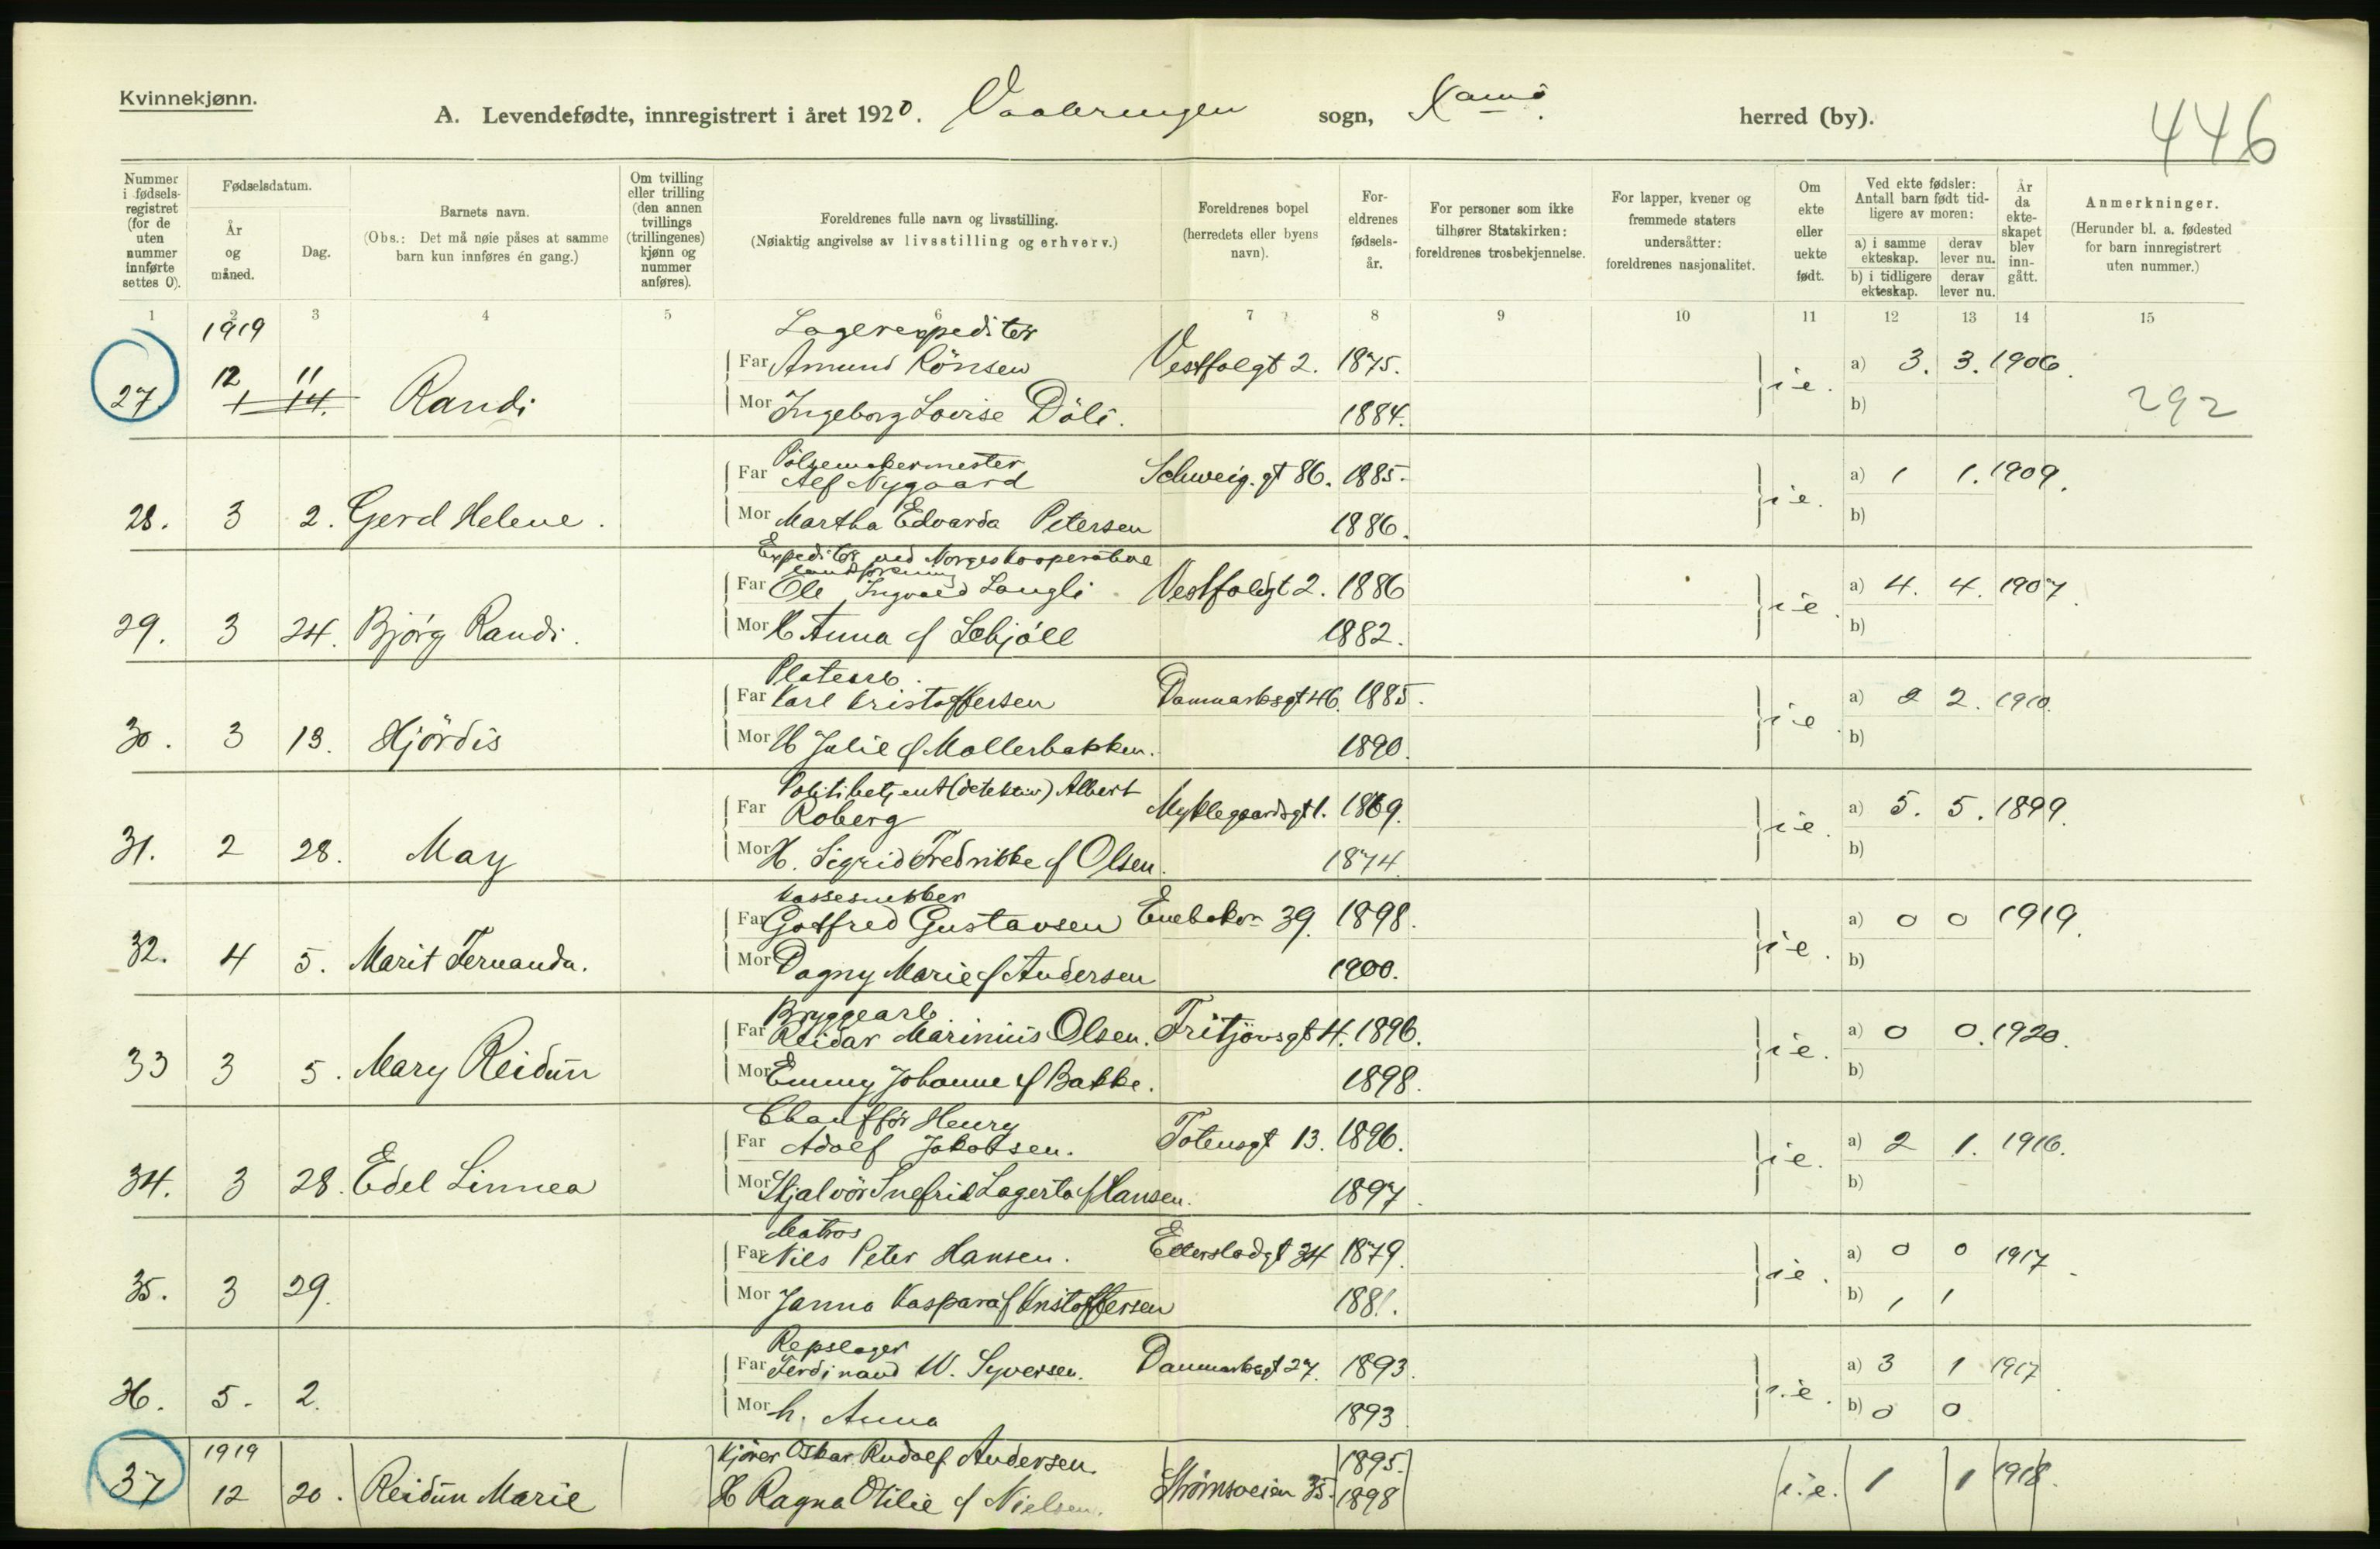 Kvinnekjønn.
A. Levendefødte, innregistrert i året 1920. Vaaleringen sogn, Xania herred (by).
446
Nummer i fødsels-registret (for de uten nummer innførte settes 0).
Fødselsdatum.
År og måned.
Dag.
Barnets navn.
(Obs.: Det må nøie påses at samme barn kun innføres én gang.)
Om tvilling eller trilling (den annen tvillings (trillingenes) kjønn og nummer anføres).
Foreldrenes fulle navn og livsstilling.
(Nøiaktig angivelse av livsstilling og erhverv.)
Foreldrenes bopel (herredets eller byens navn).
For-eldrenes fødsels-år.
For personer som ikke tilhører Statskirken: foreldrenes trosbekjennelse.
For lapper, kvener og fremmede staters undersåtter: foreldrenes nasjonalitet.
Om ekte eller uekte født.
Ved ekte fødsler: Antall barn født tid-ligere av moren:
a) i samme ekteskap. derav lever nu.
b) i tidligere ekteskap. derav lever nu.
År da ekte-skapet blev inn-gått.
Anmerkninger.
(Herunder bl. a. fødested for barn innregistrert uten nummer.)
1 2 3 4 5 6 7 8 9 10 11 12 13 14 15
1919 Lagerexpeditör
12 11 Far Amund Rönsen Vestfoldgt 2. 1875. i e. a) 3. 3. 1906.
27. 1 14. Randi Mor Ingeborg Lovise Döli. 1884. b) 292
Pölsemakermester
Far Alf Nygaard Schweig. gt 86. 1885. i e. a) 1 1. 1909.
28. 3 2. Gerd Helene. Mor Martha Edvarda Petersen 1886. b)
Expeditör ved Norges kooperative landsforening
Far Ole Ingvald Langli Vestfoldgt 2. 1886 i e. a) 4. 4. 1907.
29. 3 24. Bjørg Randi. Mor H Anna f Schjöll 1882. b)
Platearb.
Far Karl Kristoffersen Danmarksgt 46. 1885. i e. a) 2 2. 1910.
30. 3 13. Hjördis Mor H Julie f Mollerbakken. 1890. b)
Politibetjent (detektiv) Albert
Far Roberg Myklegaardsgt 1. 1869. i e. a) 5. 5. 1899.
31. 2 28. May Mor H. Sigrid Fredrikke f Olsen. 1874. b)
Kassesnekker
Far Gotfred Gustavsen Enebakv 39. 1898. i e. a) 0 0 1919.
32. 4 5. Marit Fernanda. Mor Dagny Marie f Andersen 1900. b)
Bryggearb
Far Reidar Marinius Olsen. Fritjovsgt 4. 1896. i e. a) 0 0. 1920.
33 3 5. Mary Reidun Mor Emmy Johanne f Bakke. 1898. b)
Chaufför Henry
Far Adolf Jakobsen. Totensgt 13. 1896. i e. a) 2 1. 1916.
34. 3 28. Edel Linnea Mor Hjalvör Snefrid Lagerta f Hansen. 1897. b)
Matros
Far Nils Peter Hansen. Etterstadgt 34 1879. i e. a) 0 0 1917.
35. 3 29. Mor Janna Kaspara f Kristoffersen 1881. b) 1 1
Repslager
Far Ferdinand W. Syversen. Danmarksgt 27. 1893. i. e. a) 3 1 1917.
36. 5. 2. Mor h. Anna 1893 b) 0 0
1919 Kjører Oskar Rudolf Andersen. 1895.
37 12 20. Reidun Marie H Ragna Otilie f Nielsen. Strömsveien 35. 1898 i. e. 1 1 1918.